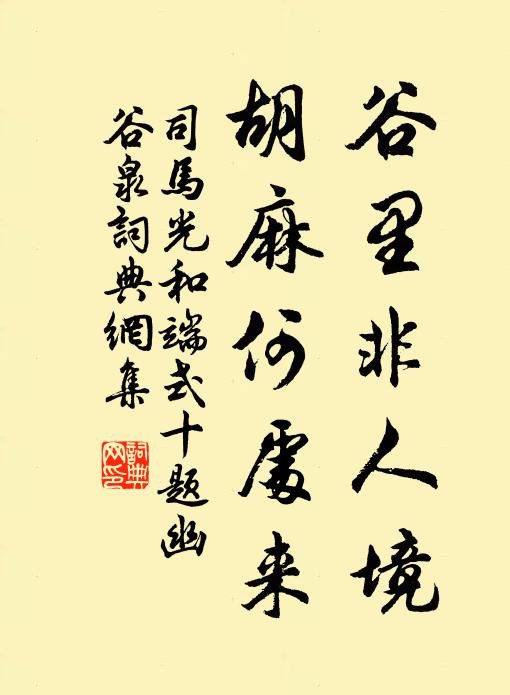 谷里非人境
胡麻何處来
司馬光和端式十题幽
谷泉詞典網集
詞典
网印